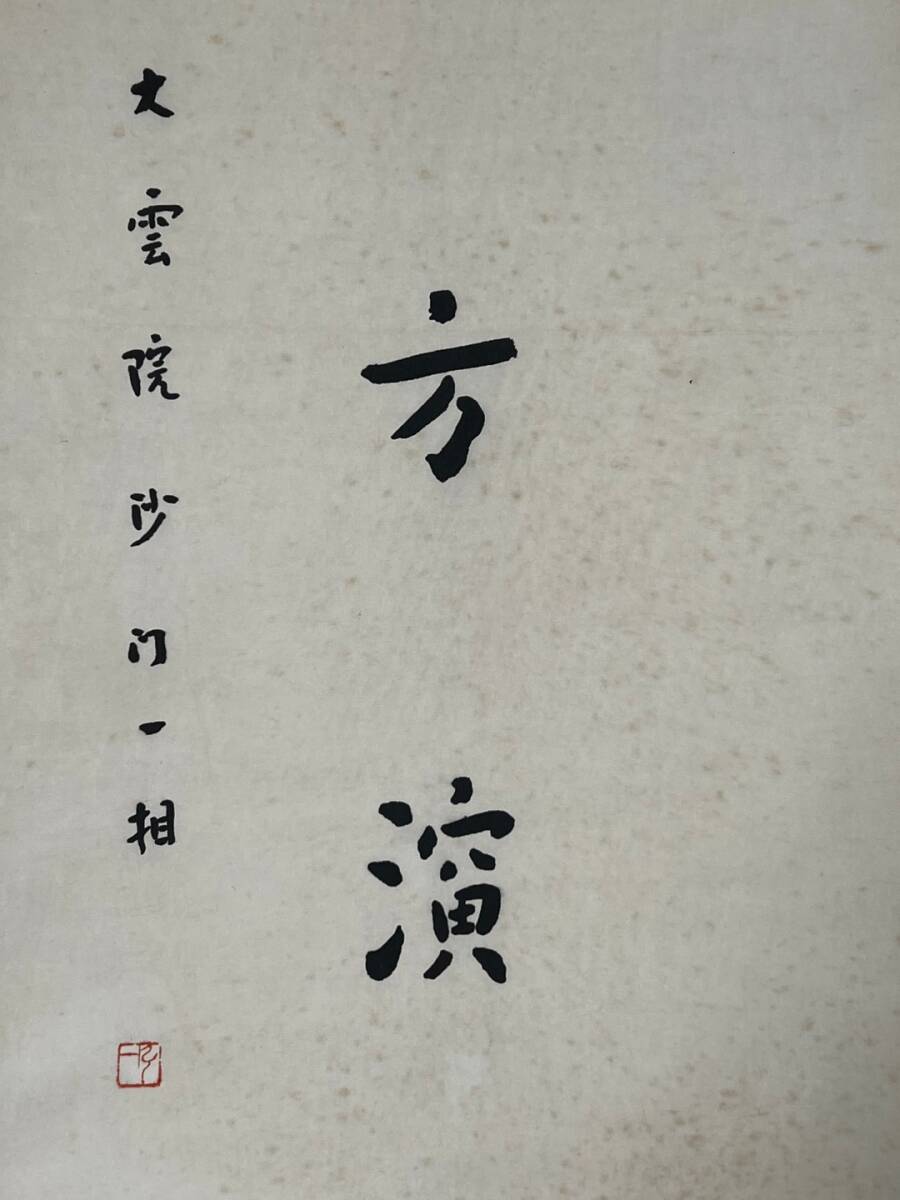 方演
大雲院沙门一相